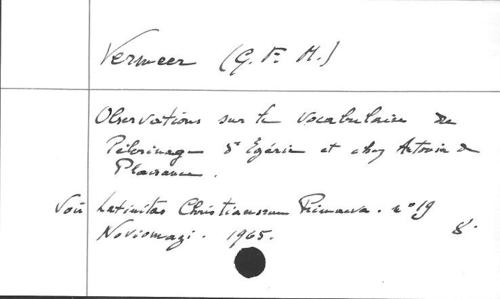 Vermeer (G. F. M.)
Observations sur le vocabulaire du
Pèlerinage d'Egérie et chez Antonin de
Plaisance.
Voir Latinitas Christianorum Primaeva. n° 19
Noviomagi. 1965. 8°